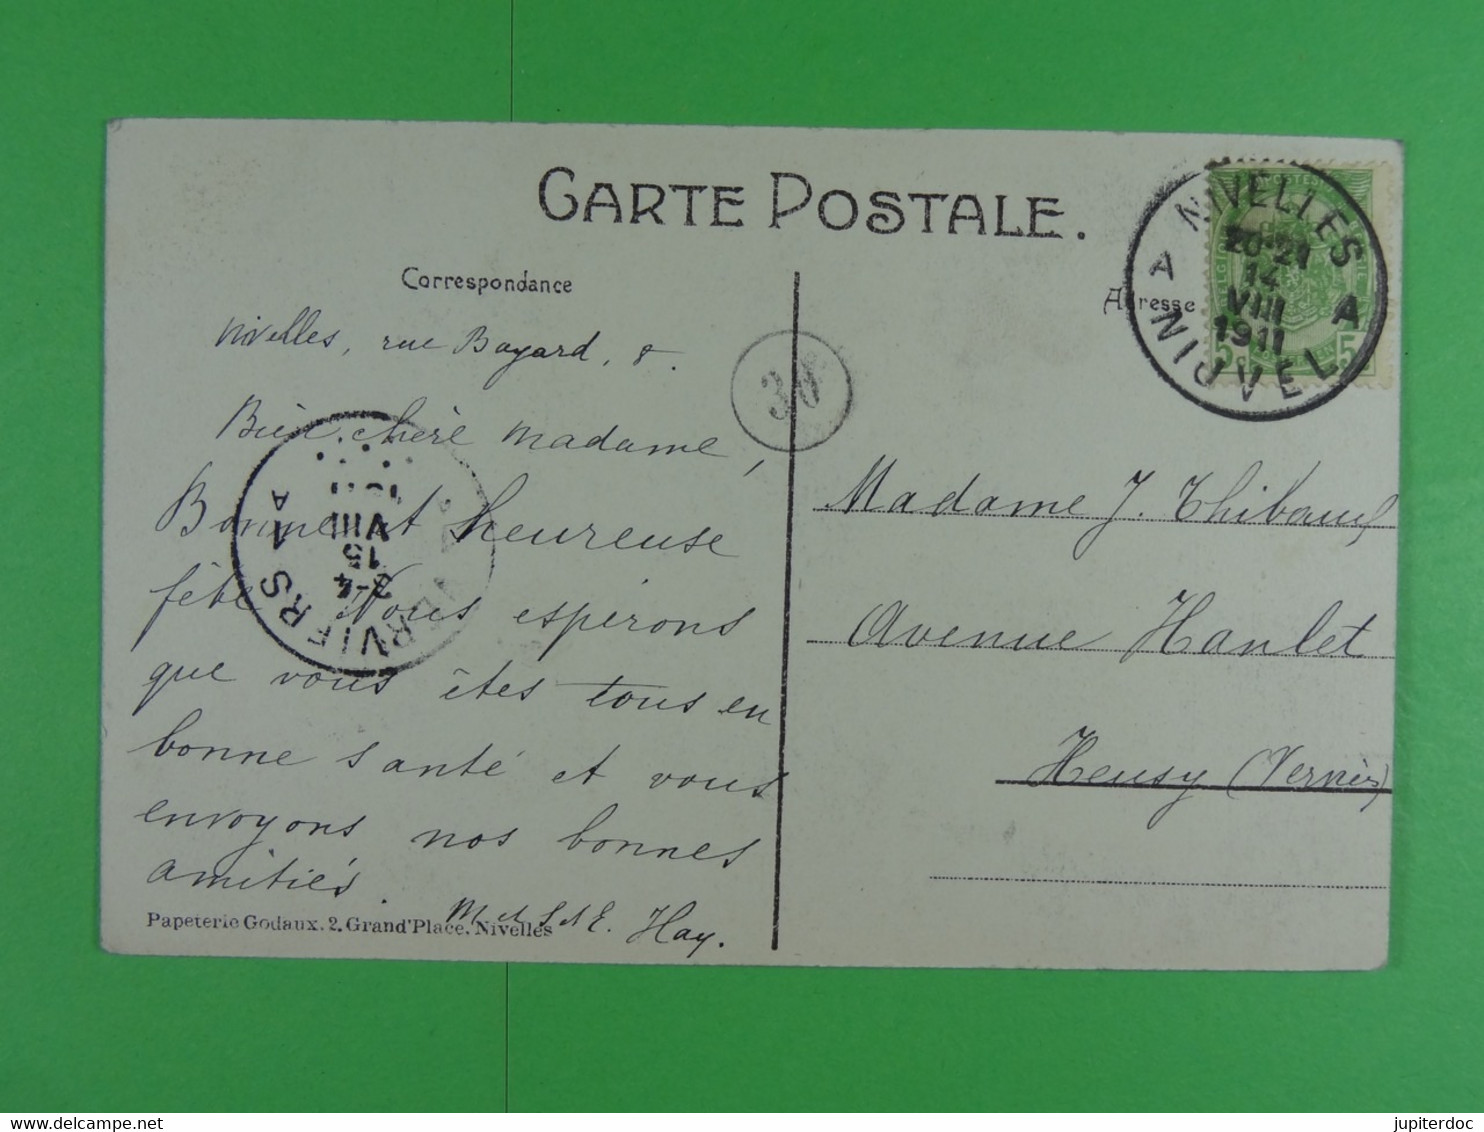 CARTE POSTALE.
Correspondance
Adresse
NIVELLES
A A
20-21
14
VIII
1911
NIJVEL
5 c 5
30
Nivelles, rue Bayard, 8.
Bien chère madame,
Bonne et heureuse
fête. Nous espérons
que vous êtes tous en
bonne santé et vous
envoyons nos bonnes
amitiés.
M et S et E. Hay.
VERVIERS
A
3-4
15
VIII
Madame J. Thibaut
Avenue Hanlet
Heusy (Verviers)
Papeterie Godaux, 2, Grand'Place, Nivelles
delcampe.net
jupiterdoc